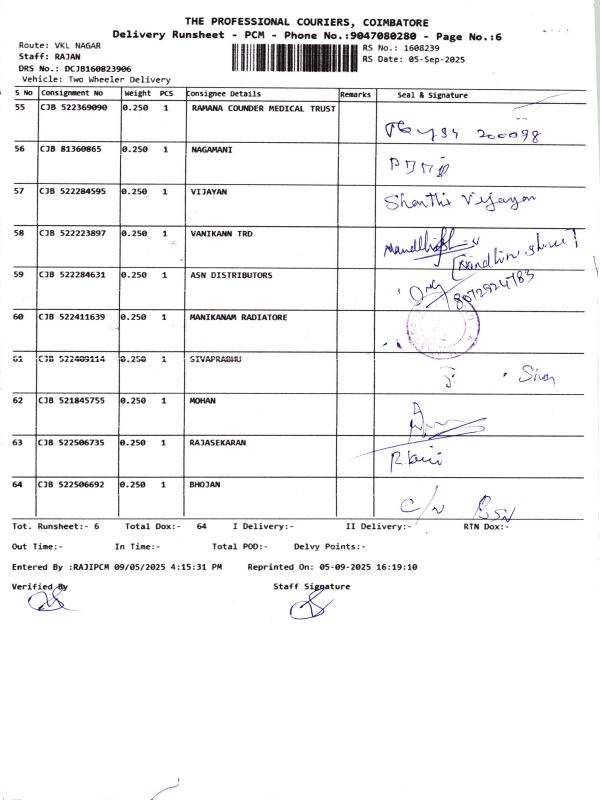 THE PROFESSIONAL COURIERS, COIMBATORE
Delivery Runsheet - PCM - Phone No.:9047080280 - Page No.:6
Route: VKL NAGAR
RS No.: 1608239
Staff: RAJAN
RS Date: 05-Sep-2025
DRS No.: DCJB160823906
Vehicle: Two Wheeler Delivery
S No Consignment No Weight PCS Consignee Details Remarks Seal & Signature
55 CJB 522369090 0.250 1 RAMANA COUNDER MEDICAL TRUST
200098
56 CJB 81360865 0.250 1 NAGAMANI
57 CJB 522284595 0.250 1 VIJAYAN
Shanthi Vijayan
58 CJB 522223897 0.250 1 VANIKANN TRD
59 CJB 522284631 0.250 1 ASN DISTRIBUTORS
8072924783
60 CJB 522411639 0.250 1 MANIKANAM RADIATORE
61 CJB 522409114 0.250 1 SIVAPRABHU
62 CJB 521845755 0.250 1 MOHAN
63 CJB 522506735 0.250 1 RAJASEKARAN
64 CJB 522506692 0.250 1 BHOJAN
Tot. Runsheet:- 6 Total Dox:- 64 I Delivery:- II Delivery:- RTN Dox:-
Out Time:- In Time:- Total POD:- Delvy Points:-
Entered By :RAJIPCM 09/05/2025 4:15:31 PM Reprinted On: 05-09-2025 16:19:10
Verified By Staff Signature